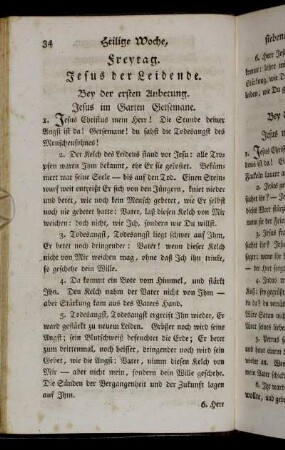 34 Heilige Woche,
Freytag.
Jesus der Leidende.
Bey der ersten Anbetung.
Jesus im Garten Getsemane.
1. Jesus Christus mein Herr! Die Stunde deiner
Angst ist da! Getsemane! du sahst die Todesangst des
Menschensohnes!
2. Der Kelch des Leidens stand vor Jesu: alle Tro-
pfen waren Ihm bekannt, ehe Er sie gekostet. Beküm-
mert war seine Seele — bis auf den Tod. Einen Stein-
wurf weit entreißt Er sich von den Jüngern, kniet nieder
und betet, wie noch kein Mensch gebetet, wie Er selbst
noch nie gebetet hatte: Vater, laß diesen Kelch von Mir
weichen: doch nicht, wie Ich, sondern wie Du willst.
3. Todesangst, Todesangst liegt schwer auf Ihm,
Er betet noch dringender: Vater! wenn dieser Kelch
nicht von Mir weichen mag, ohne daß Ich ihn trinke,
so geschehe dein Wille.
4. Da kommt ein Bote vom Himmel, und stärkt
Ihn. Den Kelch nahm der Vater nicht von Ihm —
aber Stärkung kam aus des Vaters Hand.
5. Todesangst, Todesangst ergreift Ihn wieder, Er
ward gestärkt zu neuem Leiden. Größer noch wird seine
Angst; sein Blutschweiß befeuchtet die Erde; Er betet
zum drittenmal, noch heisser, dringender noch wird sein
Gebet, wie die Angst: Vater, nimm diesen Kelch von
Mir — aber nicht mein, sondern dein Wille geschehe.
Die Sünden der Vergangenheit und der Zukunft lagen
auf Ihm.
6. Herr